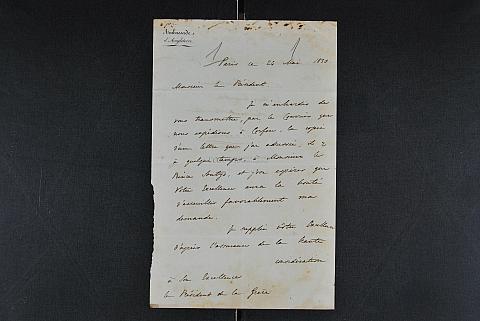 Ambassade
d'Angleterre
Paris ce 24 Mai 1830
Monsieur le Président
Je m'enhardis de
vous transmettre, par le Courrier que
nous expédions à Corfou, la copie
d'une lettre que j'ai adressée, il y
a quelque temps, à Monsieur le
et j'ose espérer que
Votre Excellence aura la bonté
d'accueillir favorablement ma
demande.
Je supplie Votre Excellence
d'agréer l'assurance de la haute
considération
à Son Excellence
le Président de la Grèce